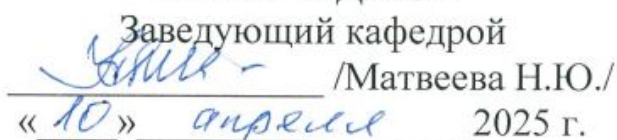 Заведующий кафедрой
/Матвеева Н.Ю./
« 10 » апреля 2025 г.